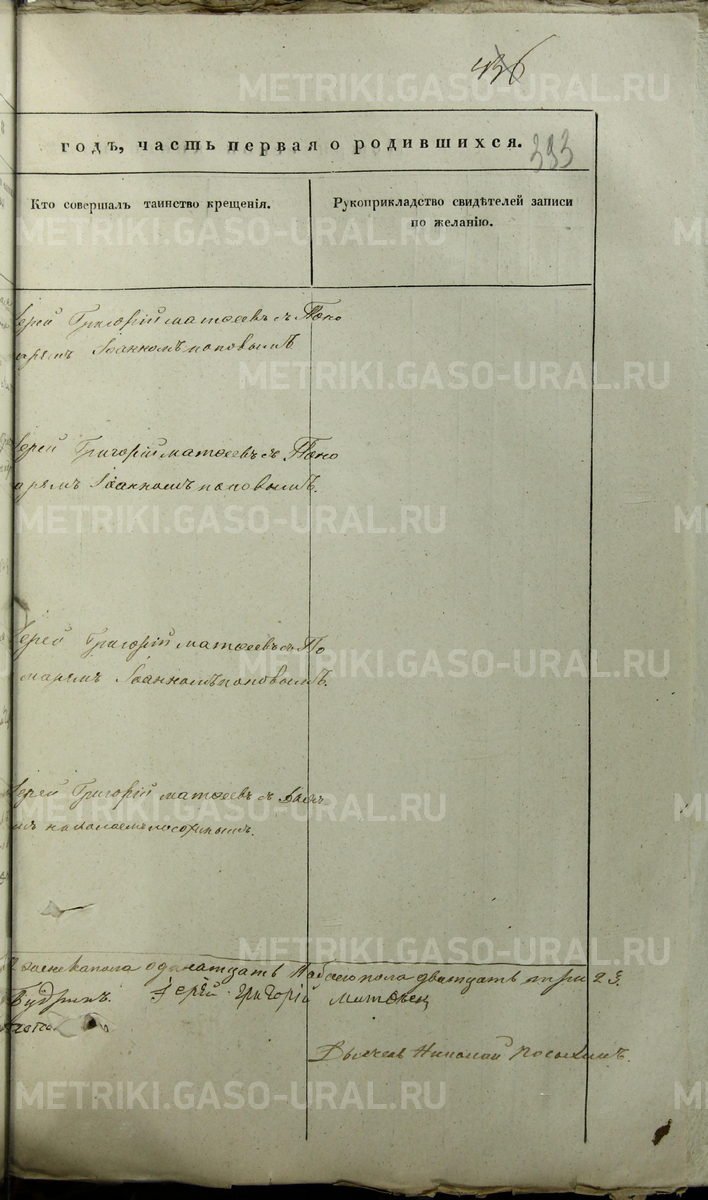 436
годъ, часть первая о родившихся.
393
Кто совершалъ таинство крещенія.
Рукоприкладство свидѣтелей записи
по желанію.
Іерей Григорій Матѳеевъ съ Поно
аремъ Іоанномъ Поповымъ
Іерей Григорій Матѳеевъ съ Поно
аремъ Іоанномъ Поповымъ.
Іерей Григорій Матѳеевъ съ По
маремъ Іоанномъ Поповымъ.
Іерей Григорій Матѳеевъ съ Дьяч
Николаемъ
женска пола одинатцать обоего пола дватцать три 23.
Іерей Григорій Матѳеев
Дьячекъ Николай
METRIKI.GASO-URAL.RU